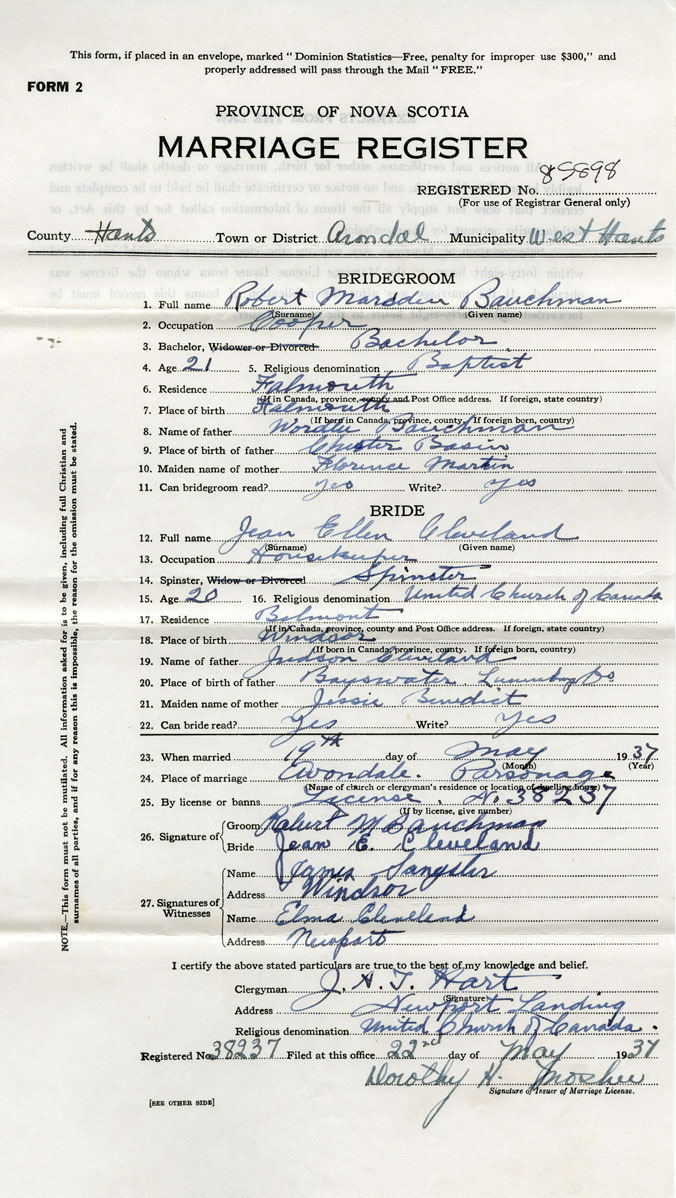 This form, if placed in an envelope, marked "Dominion Statistics—Free, penalty for improper use $300," and
properly addressed will pass through the Mail "FREE."
FORM 2
PROVINCE OF NOVA SCOTIA
MARRIAGE REGISTER
REGISTERED No. 85898
(For use of Registrar General only)
County Hants Town or District Avondale Municipality West Hants
BRIDEGROOM
1. Full name Robert Marsden Bauchman
(Surname) (Given name)
2. Occupation Cooper
3. Bachelor, Widower or Divorced Bachelor
4. Age 21 5. Religious denomination Baptist
6. Residence Falmouth
(If in Canada, province, county and Post Office address. If foreign, state country)
7. Place of birth Falmouth
(If born in Canada, province, county. If foreign born, country)
8. Name of father Bauchman
9. Place of birth of father Chester Basin
10. Maiden name of mother Florence Martin
11. Can bridegroom read? yes Write? yes
BRIDE
12. Full name Jean Ellen Cleveland
(Surname) (Given name)
13. Occupation Housekeeper
14. Spinster, Widow or Divorced Spinster
15. Age 20 16. Religious denomination United Church of Canada
17. Residence Belmont
(If in Canada, province, county and Post Office address. If foreign, state country)
18. Place of birth Windsor
(If born in Canada, province, county. If foreign born, country)
19. Name of father Judson Cleveland
20. Place of birth of father Bayswater Lunenburg Co
21. Maiden name of mother Jessie Benedict
22. Can bride read? Yes Write? Yes
23. When married 19th day of May 1937
(Month) (Year)
24. Place of marriage Avondale. Parsonage
(Name of church or clergyman's residence or location of dwelling house)
25. By license or banns License. No. 38237
(If by license, give number)
26. Signature of Groom Robert M Bauchman
Bride Jean E. Cleveland
27. Signatures of Witnesses
Name Sangster
Address Windsor
Name Elma Cleveland
Address Newport
I certify the above stated particulars are true to the best of my knowledge and belief.
Clergyman J. A. T. Hart
(Signature)
Address Newport Landing
Religious denomination United Church of Canada.
Registered No. 38237 Filed at this office 22nd day of May 1937
Dorothy H. Mosher
Signature of Issuer of Marriage License.
[SEE OTHER SIDE]
NOTE.—This form must not be mutilated. All information asked for is to be given, including full Christian and
surnames of all parties, and if for any reason this is impossible, the reason for the omission must be stated.